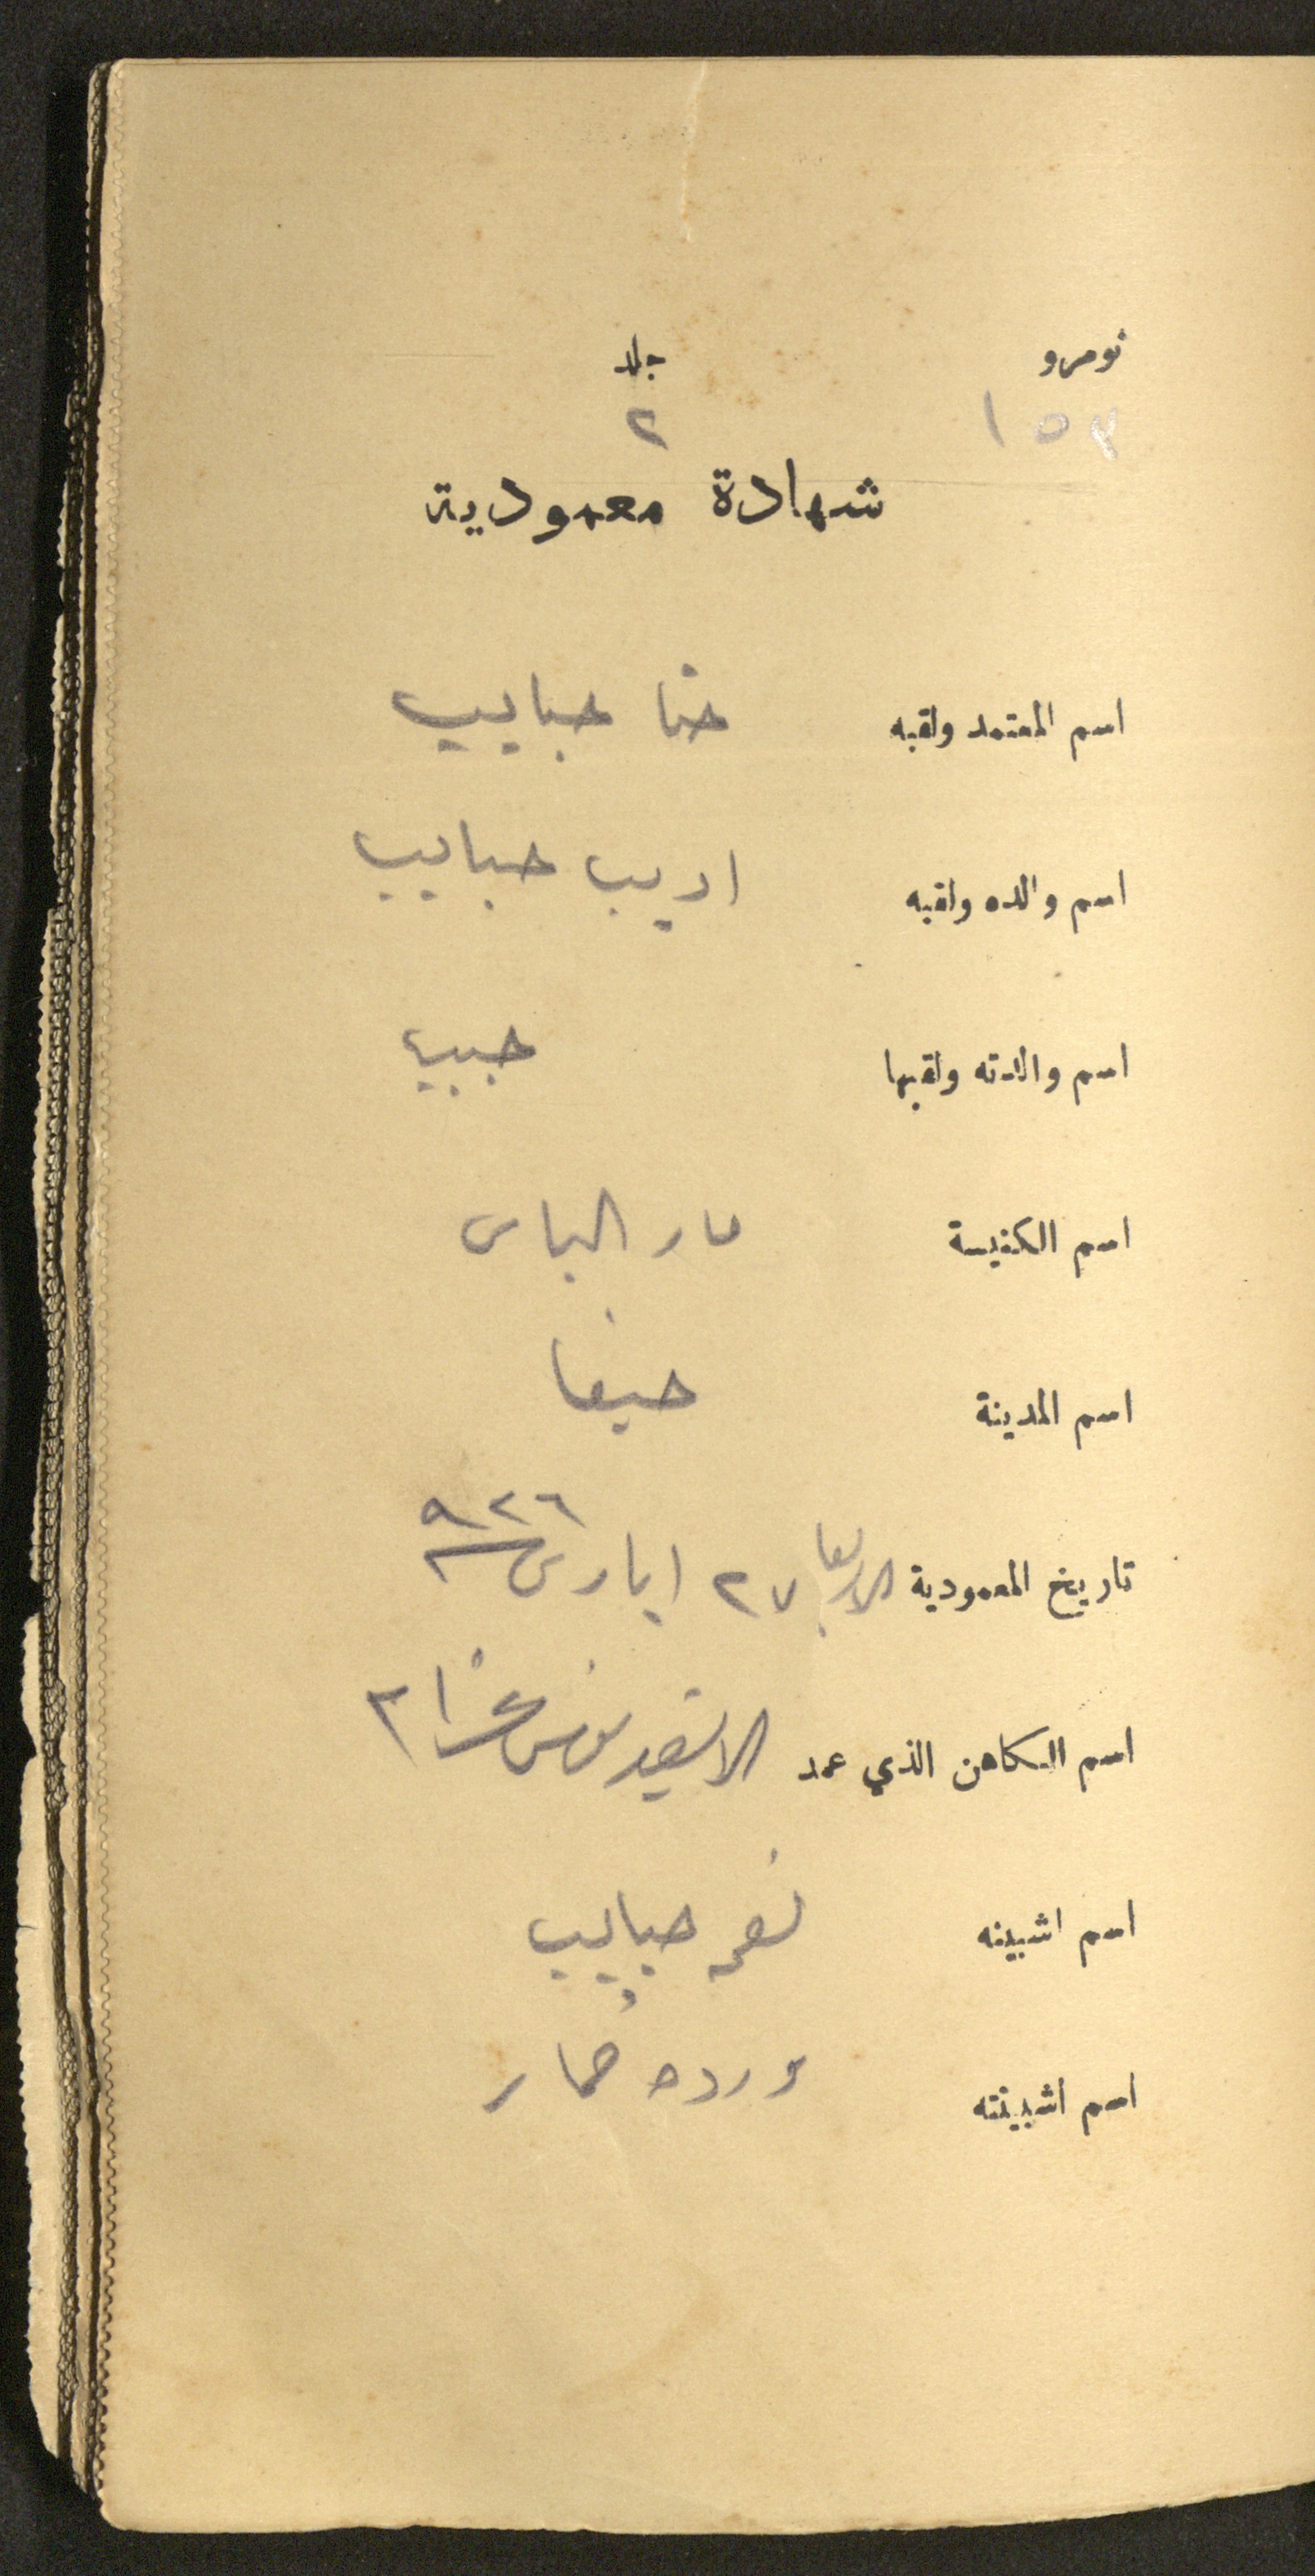 نومرو جلد
١٥٣ ٢
شهادة معمودية
اسم المعتمد ولقبه حنا حبايب
اسم والده ولقبه اديب حبايب
اسم والدته ولقبها
اسم الكنيسة مار الياس
اسم المدينة حيفا
تاريخ المعمودية الاربعا ٢٧ ايار س ٩٢٦
اسم الكاهن الذي عمد
اسم اشبينه نعمه حبايب
اسم اشبينته ورده